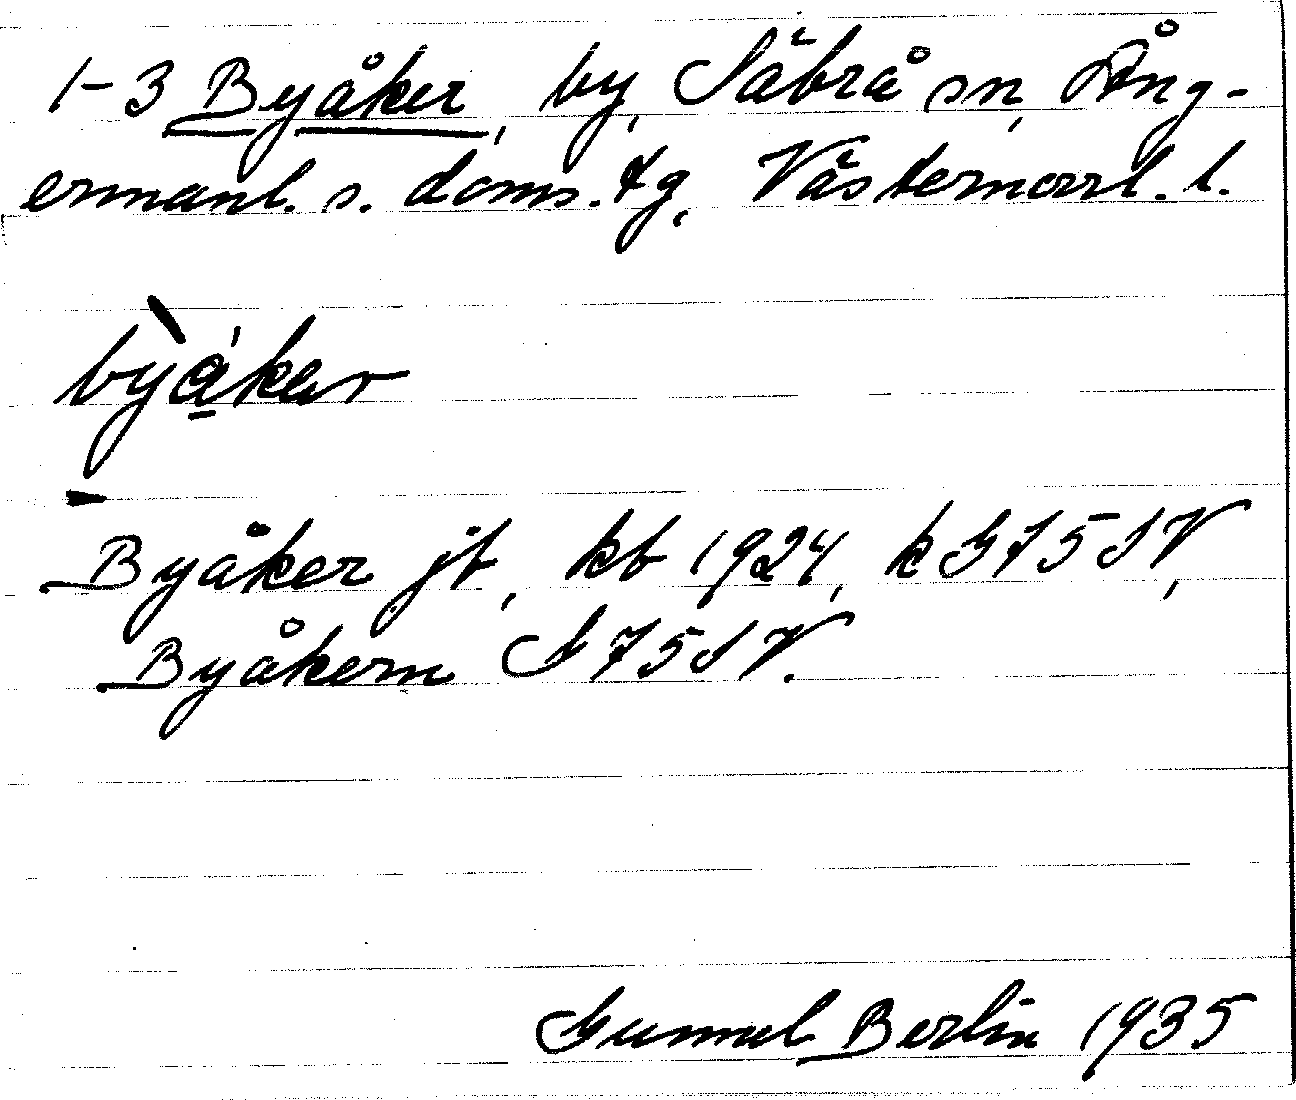 1-3 Byåker, by, Säbrå sn, Ång-
ermanl. s. doms. tg, Västernorrl. l.
bỳa̱´ker
Byåker jb, kb 1924, k G75SV,
Byåkern S75SV.
Gunnel Berlin 1935